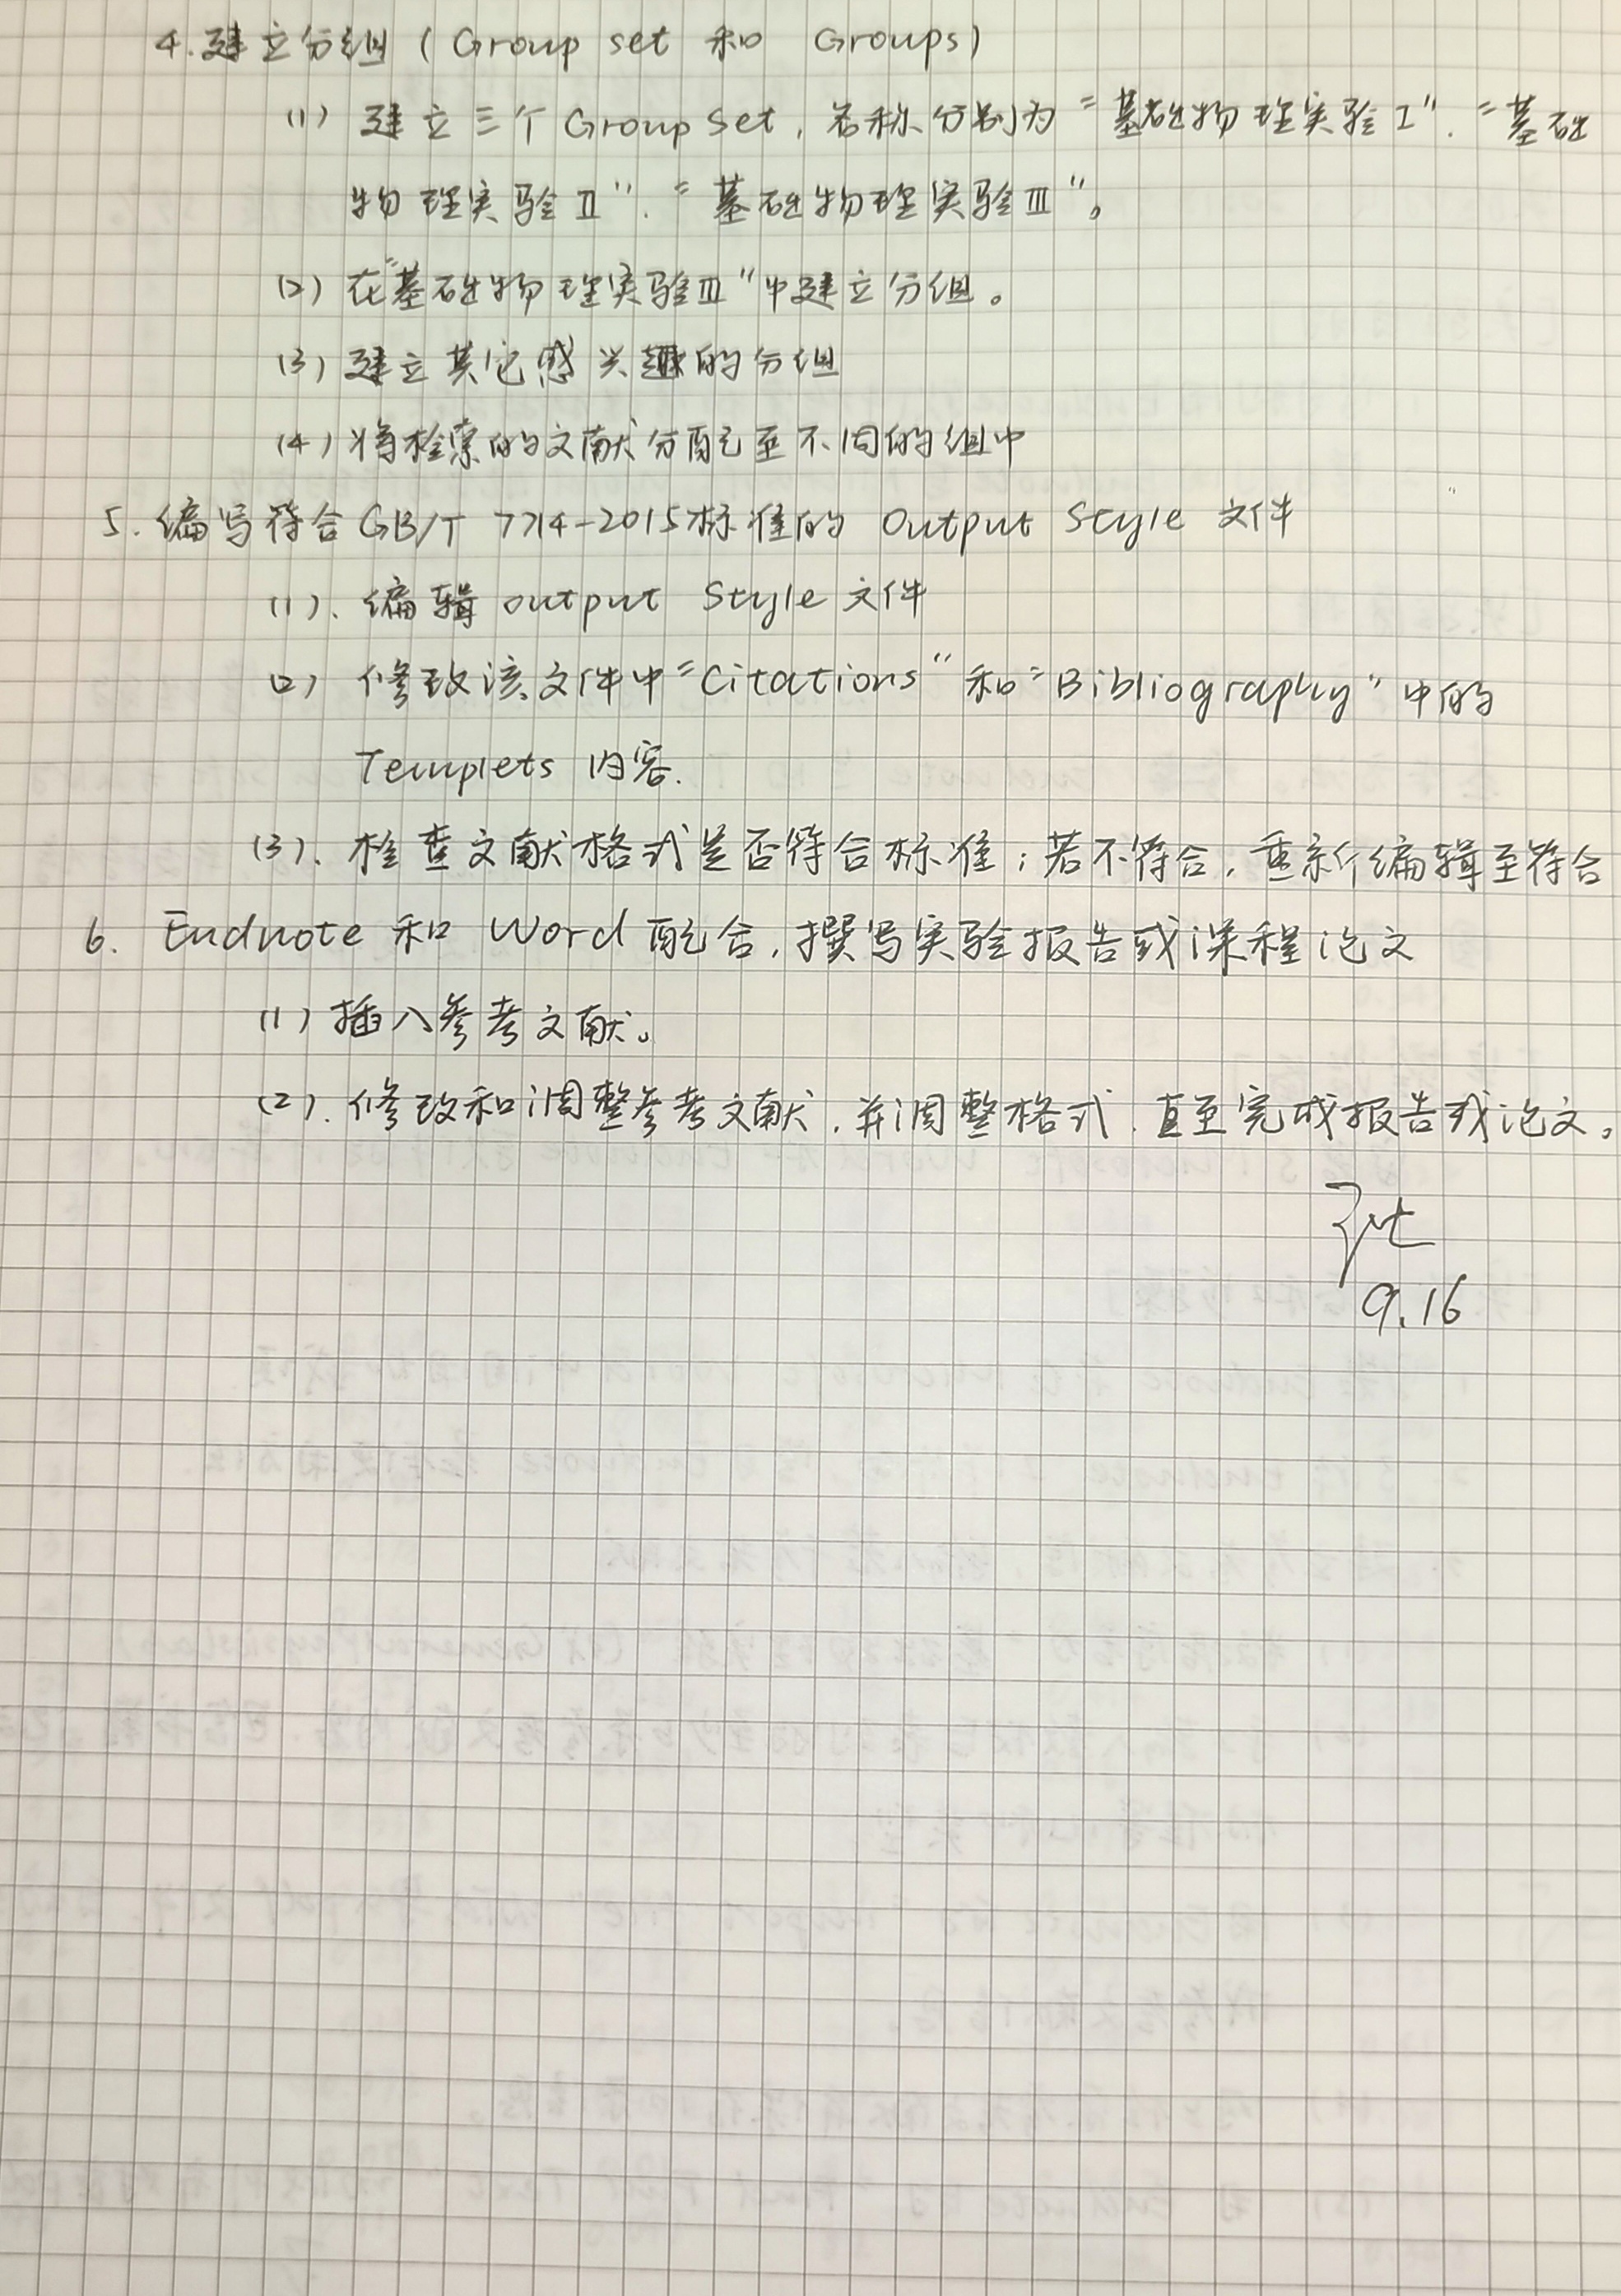 4.建立分组(Group set 和 Groups)
(1) 建立三个Group Set,名称分别为"基础物理实验I"."基础
物理实验II"."基础物理实验III"。
(2) 在"基础物理实验III"中建立分组。
(3) 建立其它感兴趣的分组
(4) 将检索的文献分配至不同的组中
5.编写符合GB/T 7714-2015标准的 Output Style 文件
(1).编辑 output Style 文件
(2) 修改该文件中"Citations"和"Bibliography"中的
Templets 内容.
(3).检查文献格式是否符合标准;若不符合,重新编辑至符合
6. Endnote 和 Word 配合,撰写实验报告或课程论文
(1) 插入参考文献。
(2).修改和调整参考文献,并调整格式.直至完成报告或论文。
9.16